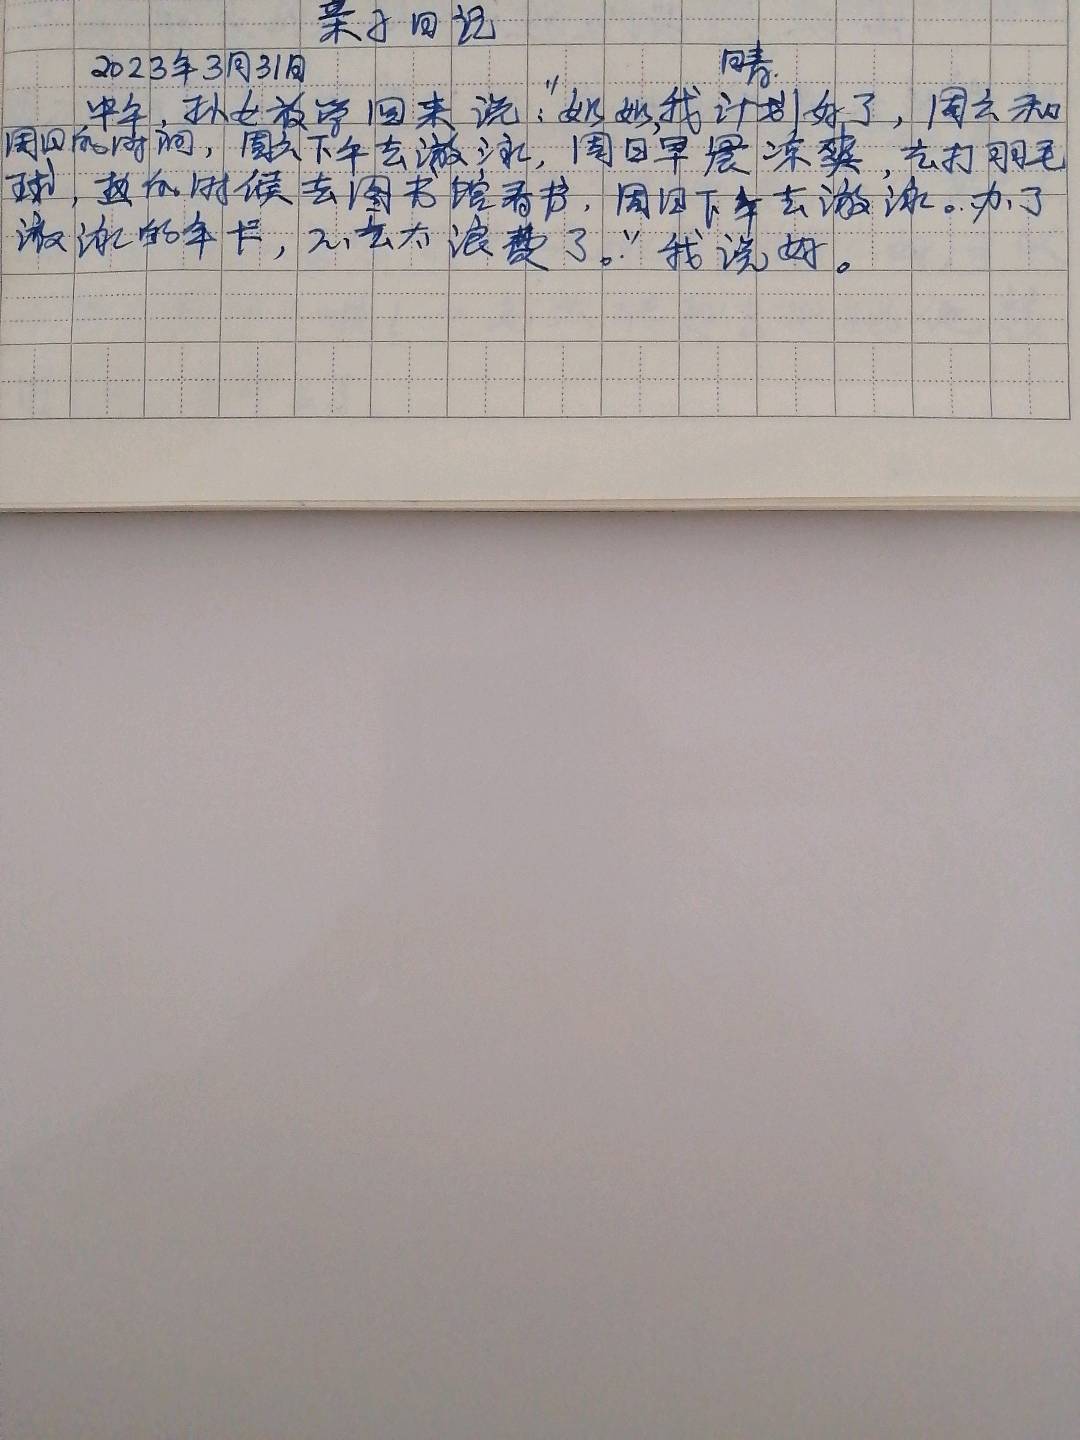 亲子日记
2023年3月31日 晴
中午,孙女放学回来说:"奶奶,我计划好了,周六和
周日的时间,周六下午去游泳,周日早晨凉爽,去打羽毛
球,热的时候去图书馆看书,周日下午去游泳。办了
游泳的年卡,不去太浪费了。"我说好。